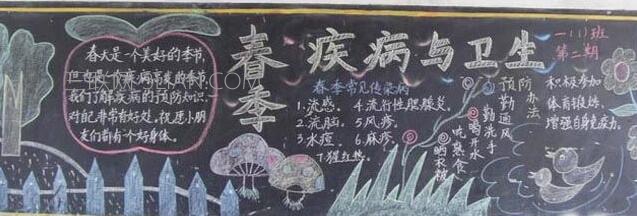 春季
疾病与卫生
一(1)班
第二期
春天是一个美好的季节,
但也是个疾病高发的季节,
我们了解疾病的预防知识,
对配非常有好处。祝愿小朋
友们都有个好身体。
春季常见传染病
1.流感。
2.流脑。
3.水痘
4.流行性腮腺炎。
5.风疹。
6.麻疹。
7.猩红热
预防办法
勤通风
勤洗手
喝开水
吃熟食
晒衣被
积极参加
体育锻炼,
增强自身免疫力。